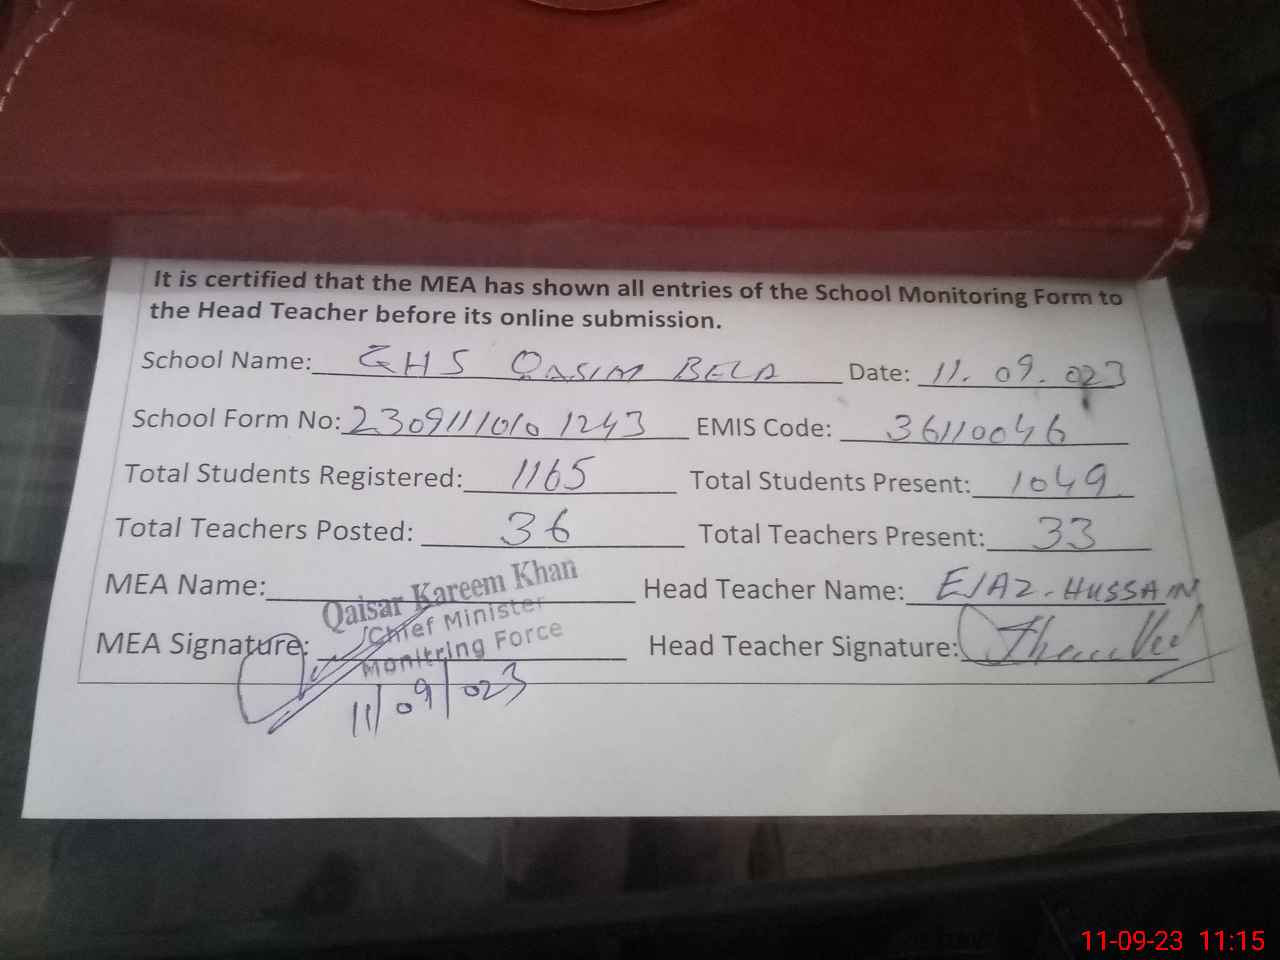 It is certified that the MEA has shown all entries of the School Monitoring Form to
the Head Teacher before its online submission.
School Name: GHS QASIM BELA Date: 11.09.023
School Form No: 23091110101243 EMIS Code: 36110046
Total Students Registered: 1165 Total Students Present: 1049
Total Teachers Posted: 36 Total Teachers Present: 33
MEA Name: Qaisar Kareem Khan Head Teacher Name: EJAZ-HUSSAIN
Chief Minister
MEA Signature: Monitring Force Head Teacher Signature:
11/09/023
11-09-23 11:15